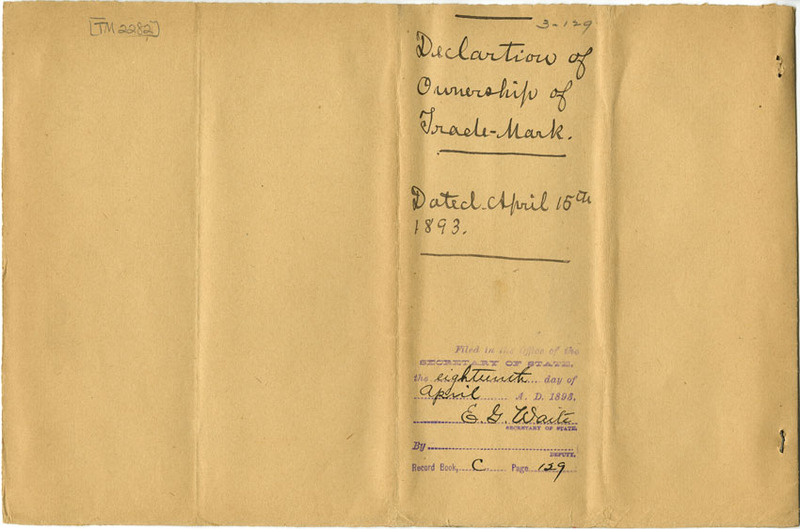 [TM2282]
3-129
Declartion of
Ownership of
Trade-Mark.
Dated April 15th
1893.
Filed in the Office of the
SECRETARY OF STATE,
the eighteenth day of
April A. D. 1893.
E. G. Waite
SECRETARY OF STATE.
By
DEPUTY.
Record Book, C Page 129